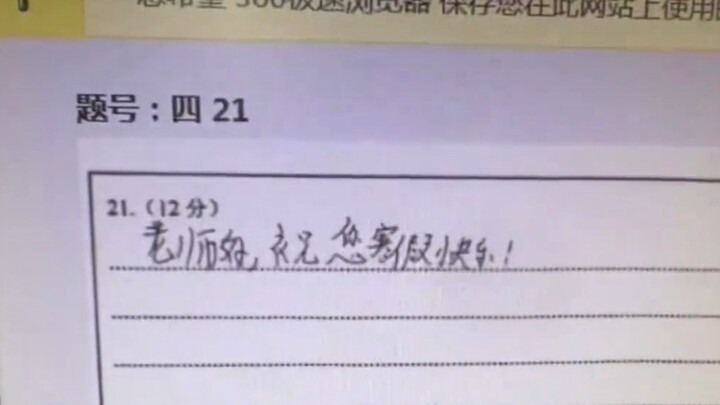 您希望 360极速浏览器 保存您在此网站上使用
题号：四 21
21.（12分）
老师好，祝您寒假快乐！